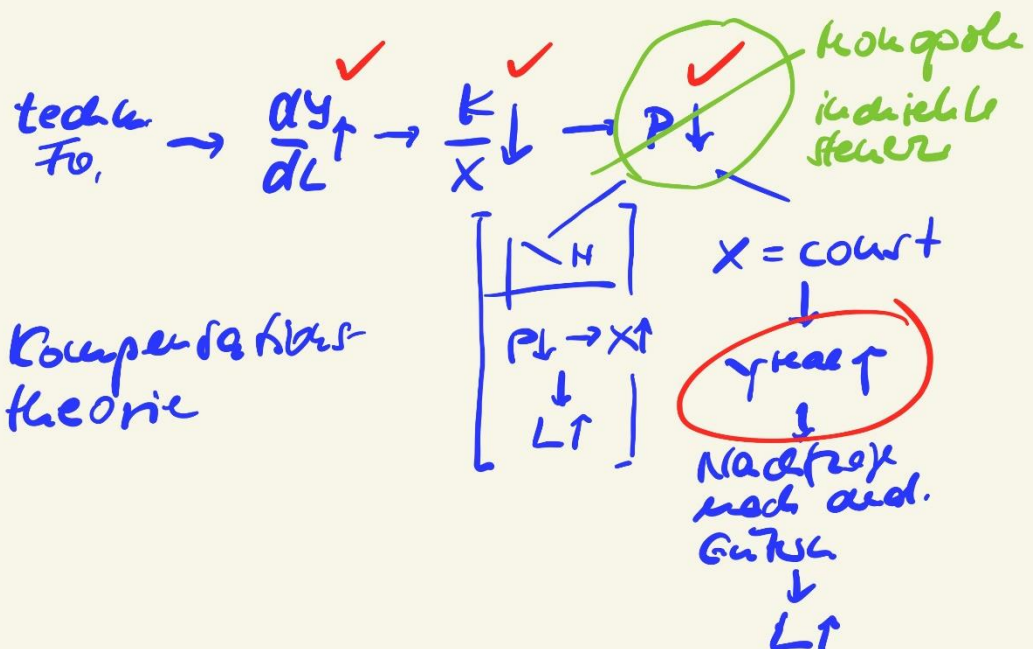 techn. → dy/dL ↑ → K/X ↓ → P ↓
Fo.
Monopole
indirekte
Steuern
N
P↓ → X↑
↓
L↑
X = const
↓
Y real ↑
↓
Nachfrage
nach and.
Gütern
↓
L↑
Kompensations-
theorie